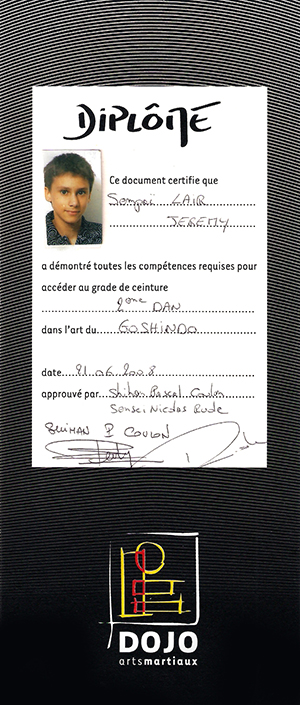 DIPLÔMÉ
Ce document certifie que
Sempaï LAIR
JEREMY
a démontré toutes les compétences requises pour
accéder au grade de ceinture
2ème DAN
dans l'art du GOSHINDO
date 21.06.2008
approuvé par Shihan Pascal Coulon
Sensei Nicolas Rude
SHIHAN P COULON
DOJO
artsmartiaux